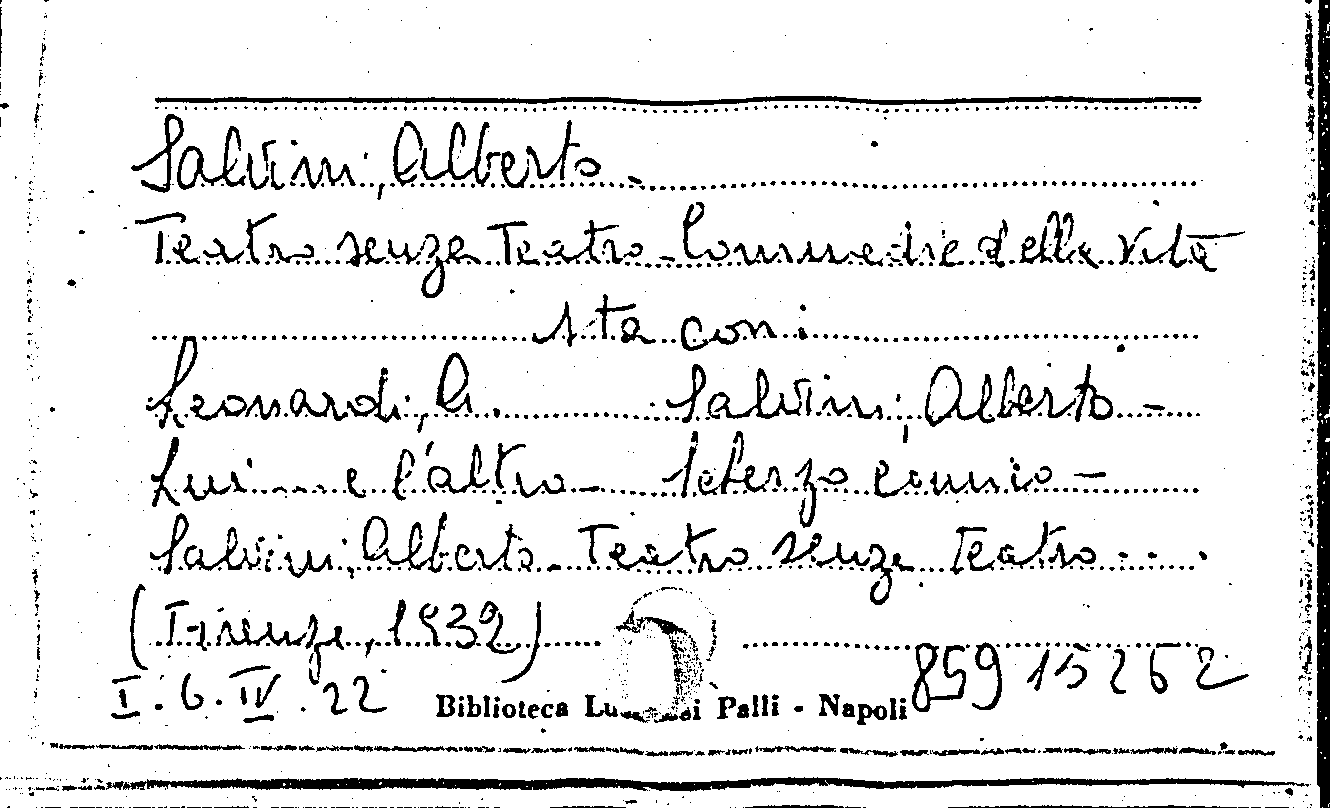 Salvini, Alberto.
Teatro senza Teatro - Commedie della Vita
sta con:
Leonardi, G. Salvini, Alberto -
Lui... e l'altro - Scherzo comico -
Salvini, Alberto - Teatro senza Teatro...
(Firenze, 1932)
I. 6. IV. 22
Biblioteca Palli - Napoli
859 15262